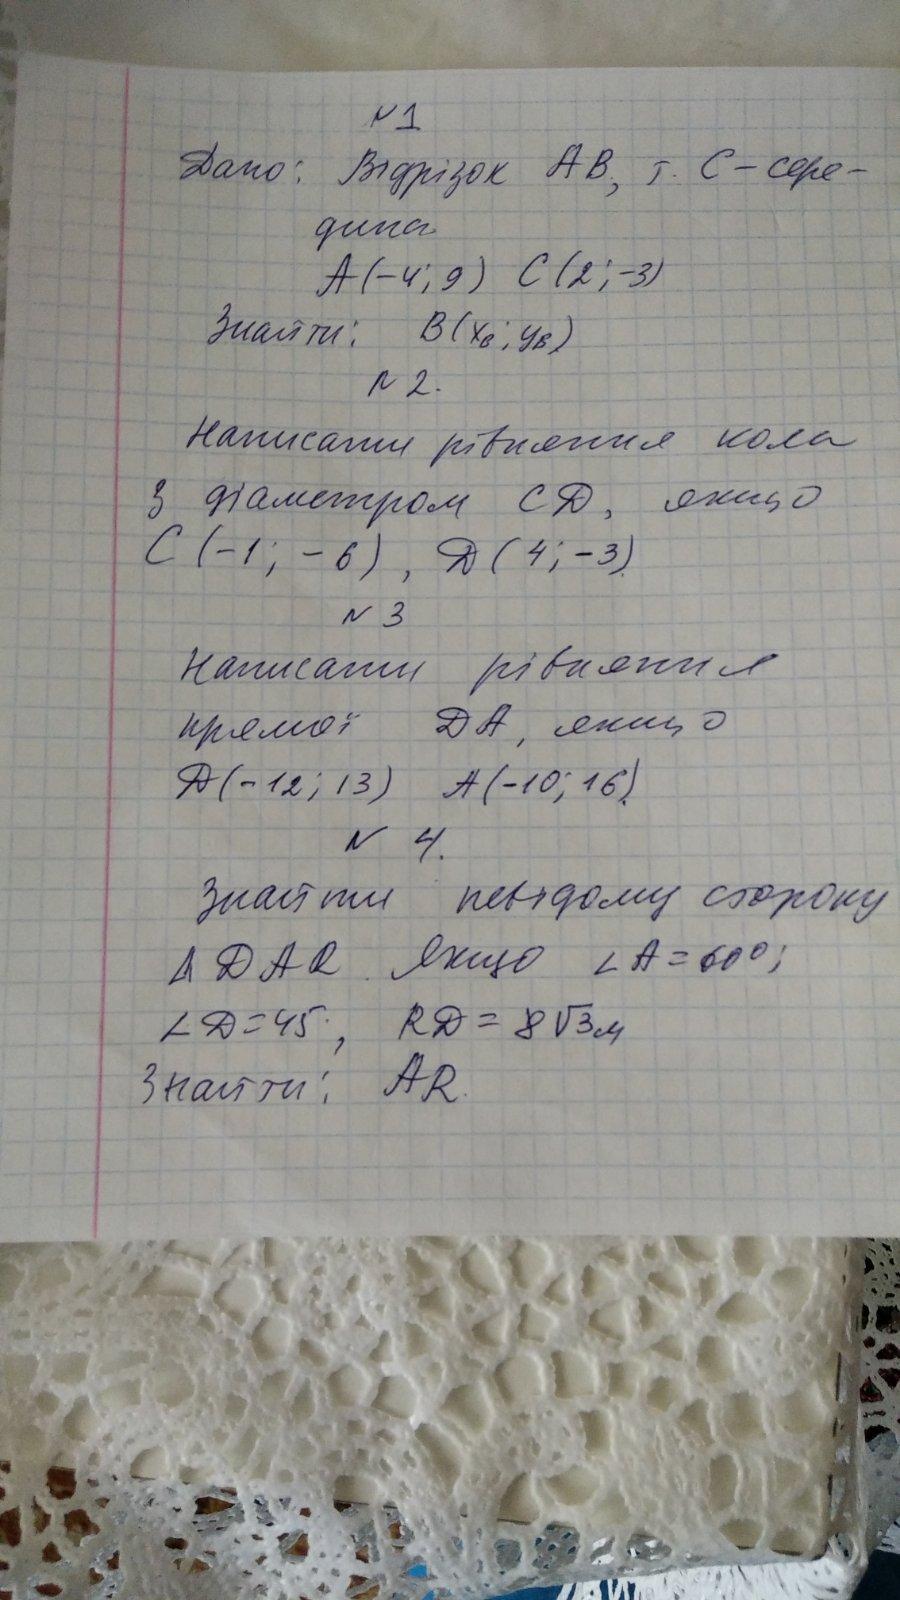 №1
Дано: Відрізок AB, т. C – сере-
дина
A(-4; 9) C(2; -3)
Знайти: B(xв; yв)
№2.
Написати рівняння кола
з діаметром CD, якщо
C(-1; -6), D(4; -3).
№3
Написати рівняння
прямої DA, якщо
D(-12; 13) A(-10; 16).
№ 4.
Знайти невідому сторону
Δ DAR. Якщо ∠A=60°;
∠D=45°, RD = 8√3м
Знайти: AR.